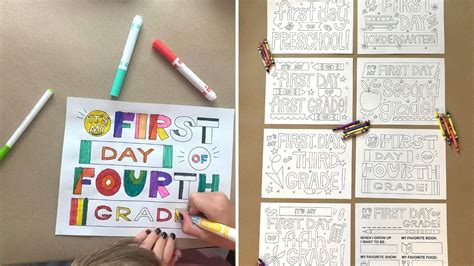 IT'S MY
FIRST
DAY
OF
FOURTH
GRADE
First Day
of
PRESCHOOL!
FIRST DAY
OF
KINDERGARTEN!
IT'S MY
first DAY
OF
first
GRADE!
IT'S MY
FIRST DAY
OF
Second
Grade!
IT'S MY
FIRST DAY
OF
THIRD
GRADE!
IT'S MY
FIRST
DAY
OF
FOURTH
GRADE!
IT'S MY
FIRST
DAY OF
fifth
GRADE!
IT'S MY
FIRST DAY OF
GRADE!
WHEN I GROW UP
I WANT TO BE:
MY FAVORITE BOOK:
MY FAVORITE FOOD: